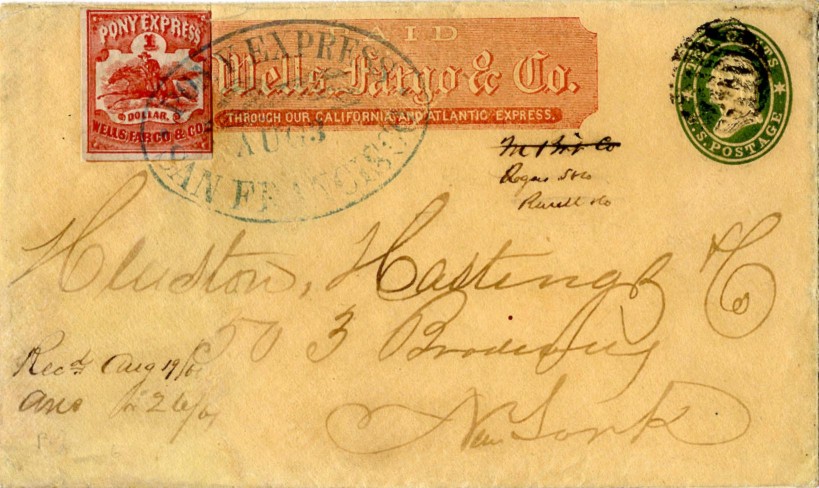 PONY EXPRESS
1
DOLLAR.
WELLS, FARGO & CO.
PAID
Wells, Fargo & Co.
THROUGH OUR CALIFORNIA AND ATLANTIC EXPRESS.
PONY EXPRESS
AUG 3
SAN FRANCISCO
TEN CENTS
U.S. POSTAGE
Co
Rogers
Hastings & Co
503 Broadway
New York
Recd Aug 19/61
ans " 26/61